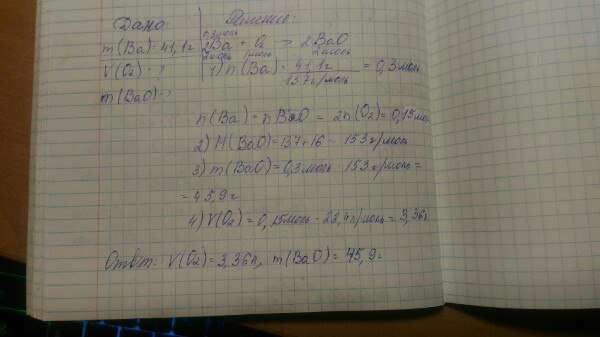 Дано
Решение:
0,3моль
m(Ba)=41,1г
2Ba + O₂ > 2BaO
2моль 1моль 2моль
V(O₂)-?
1) n(Ba)= 41,1г / 137г/моль = 0,3моль
m(BaO)-?
n(Ba)=nBaO = 2n(O₂)=0,15мо
2) M(BaO)=137+16= 153г/моль
3) m(BaO)=0,3моль · 153г/моль =
=45,9г
4) V(O₂)=0,15моль · 22,4л/моль=3,36л
Ответ: V(O₂)=3,36л, m(BaO)=45,9г